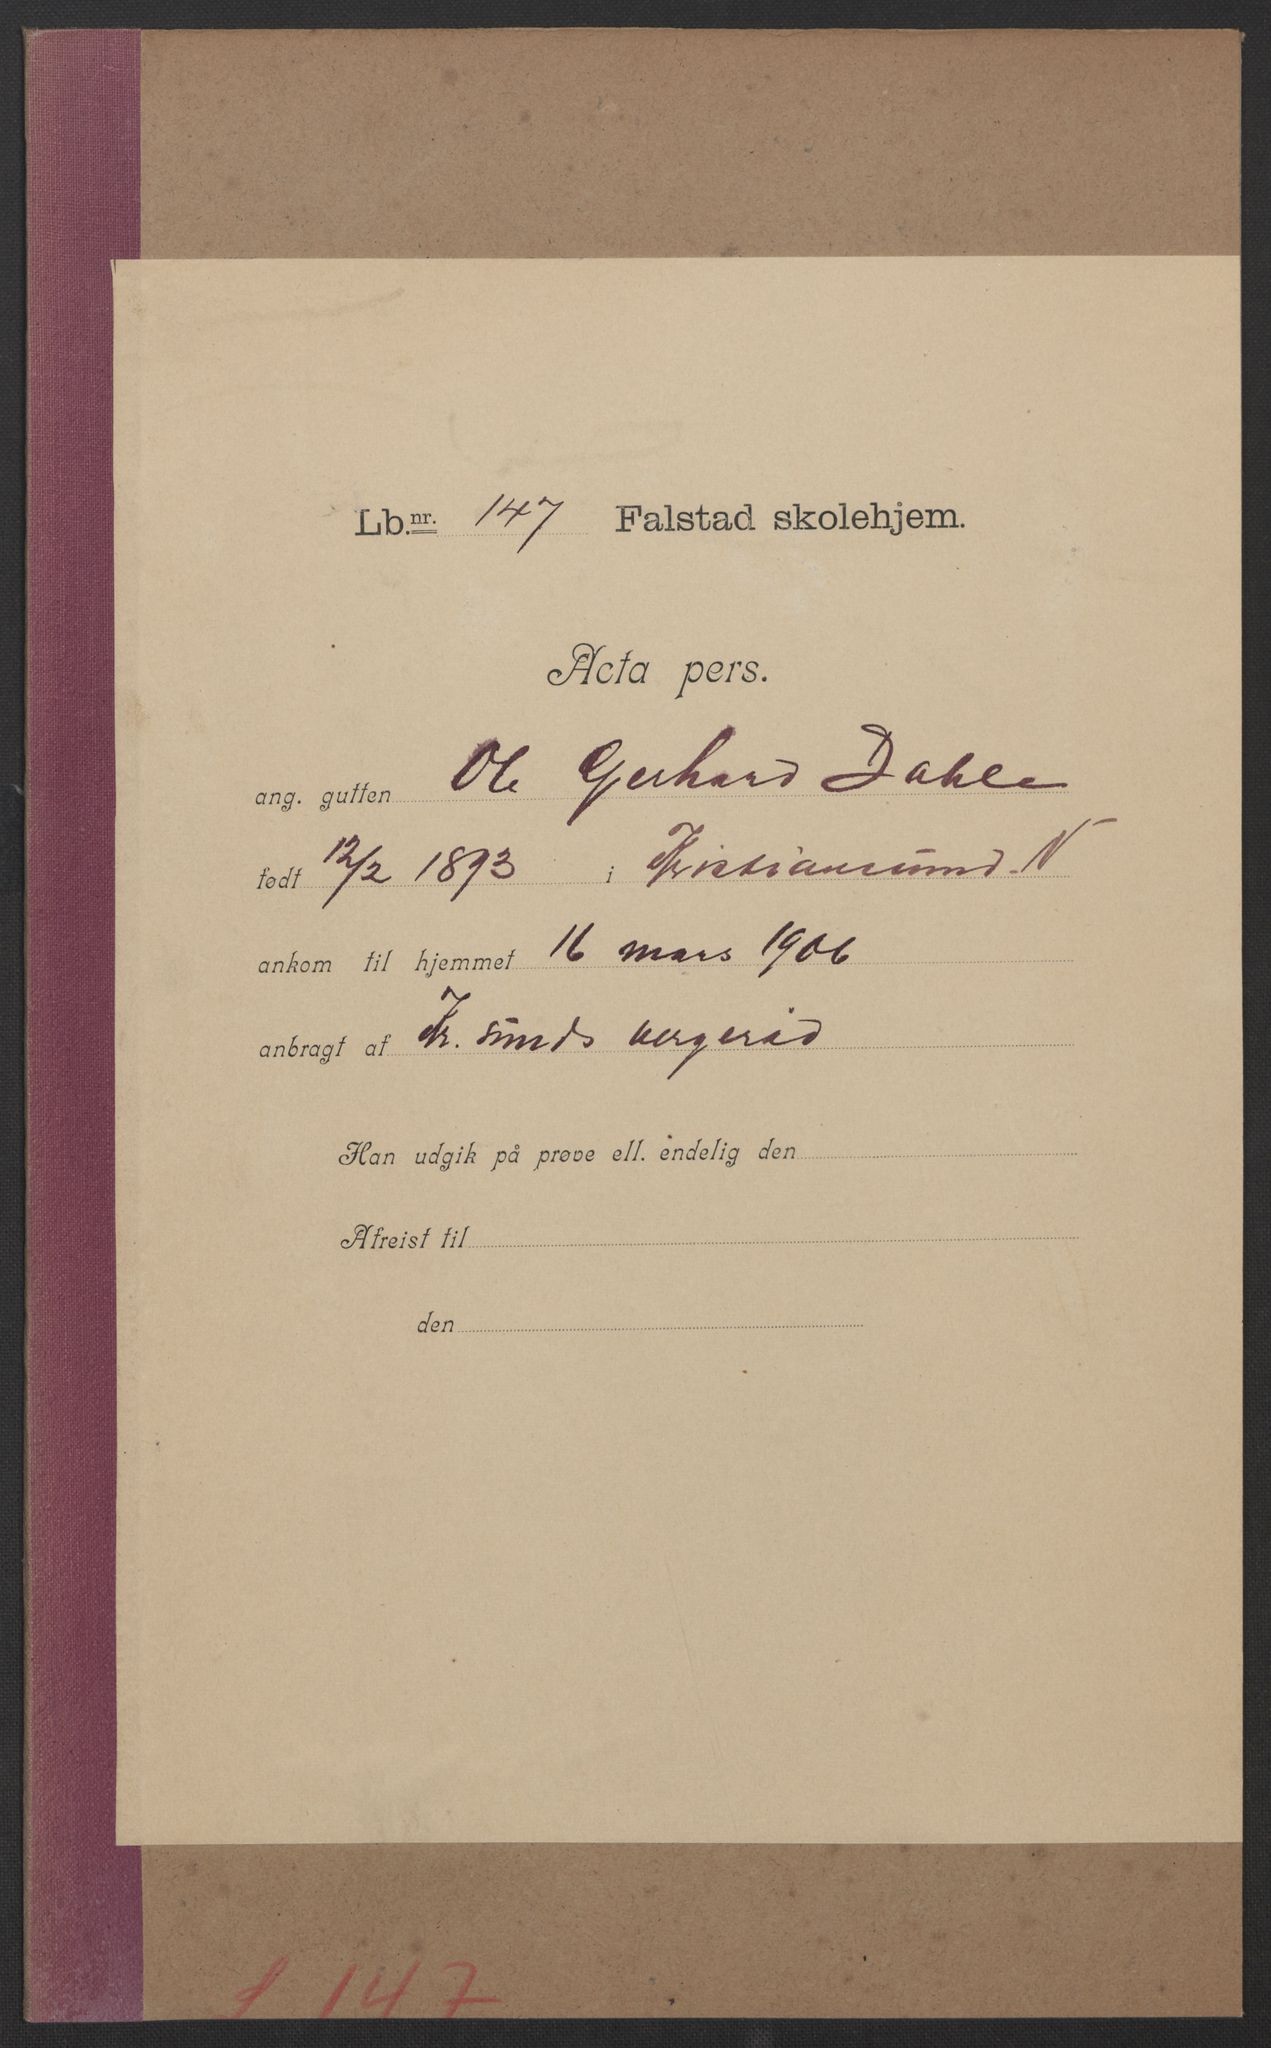 Lb.nr. 147 Falstad skolehjem.
Acta pers.
ang. gutten Ole Gerhard Dahle
født 12/2 1893 i Kristiansund. N
ankom til hjemmet 16 mars 1906
anbragt af Kr. sunds vergeråd
Han udgik på prøve ell. endelig den
Afreist til
den
147